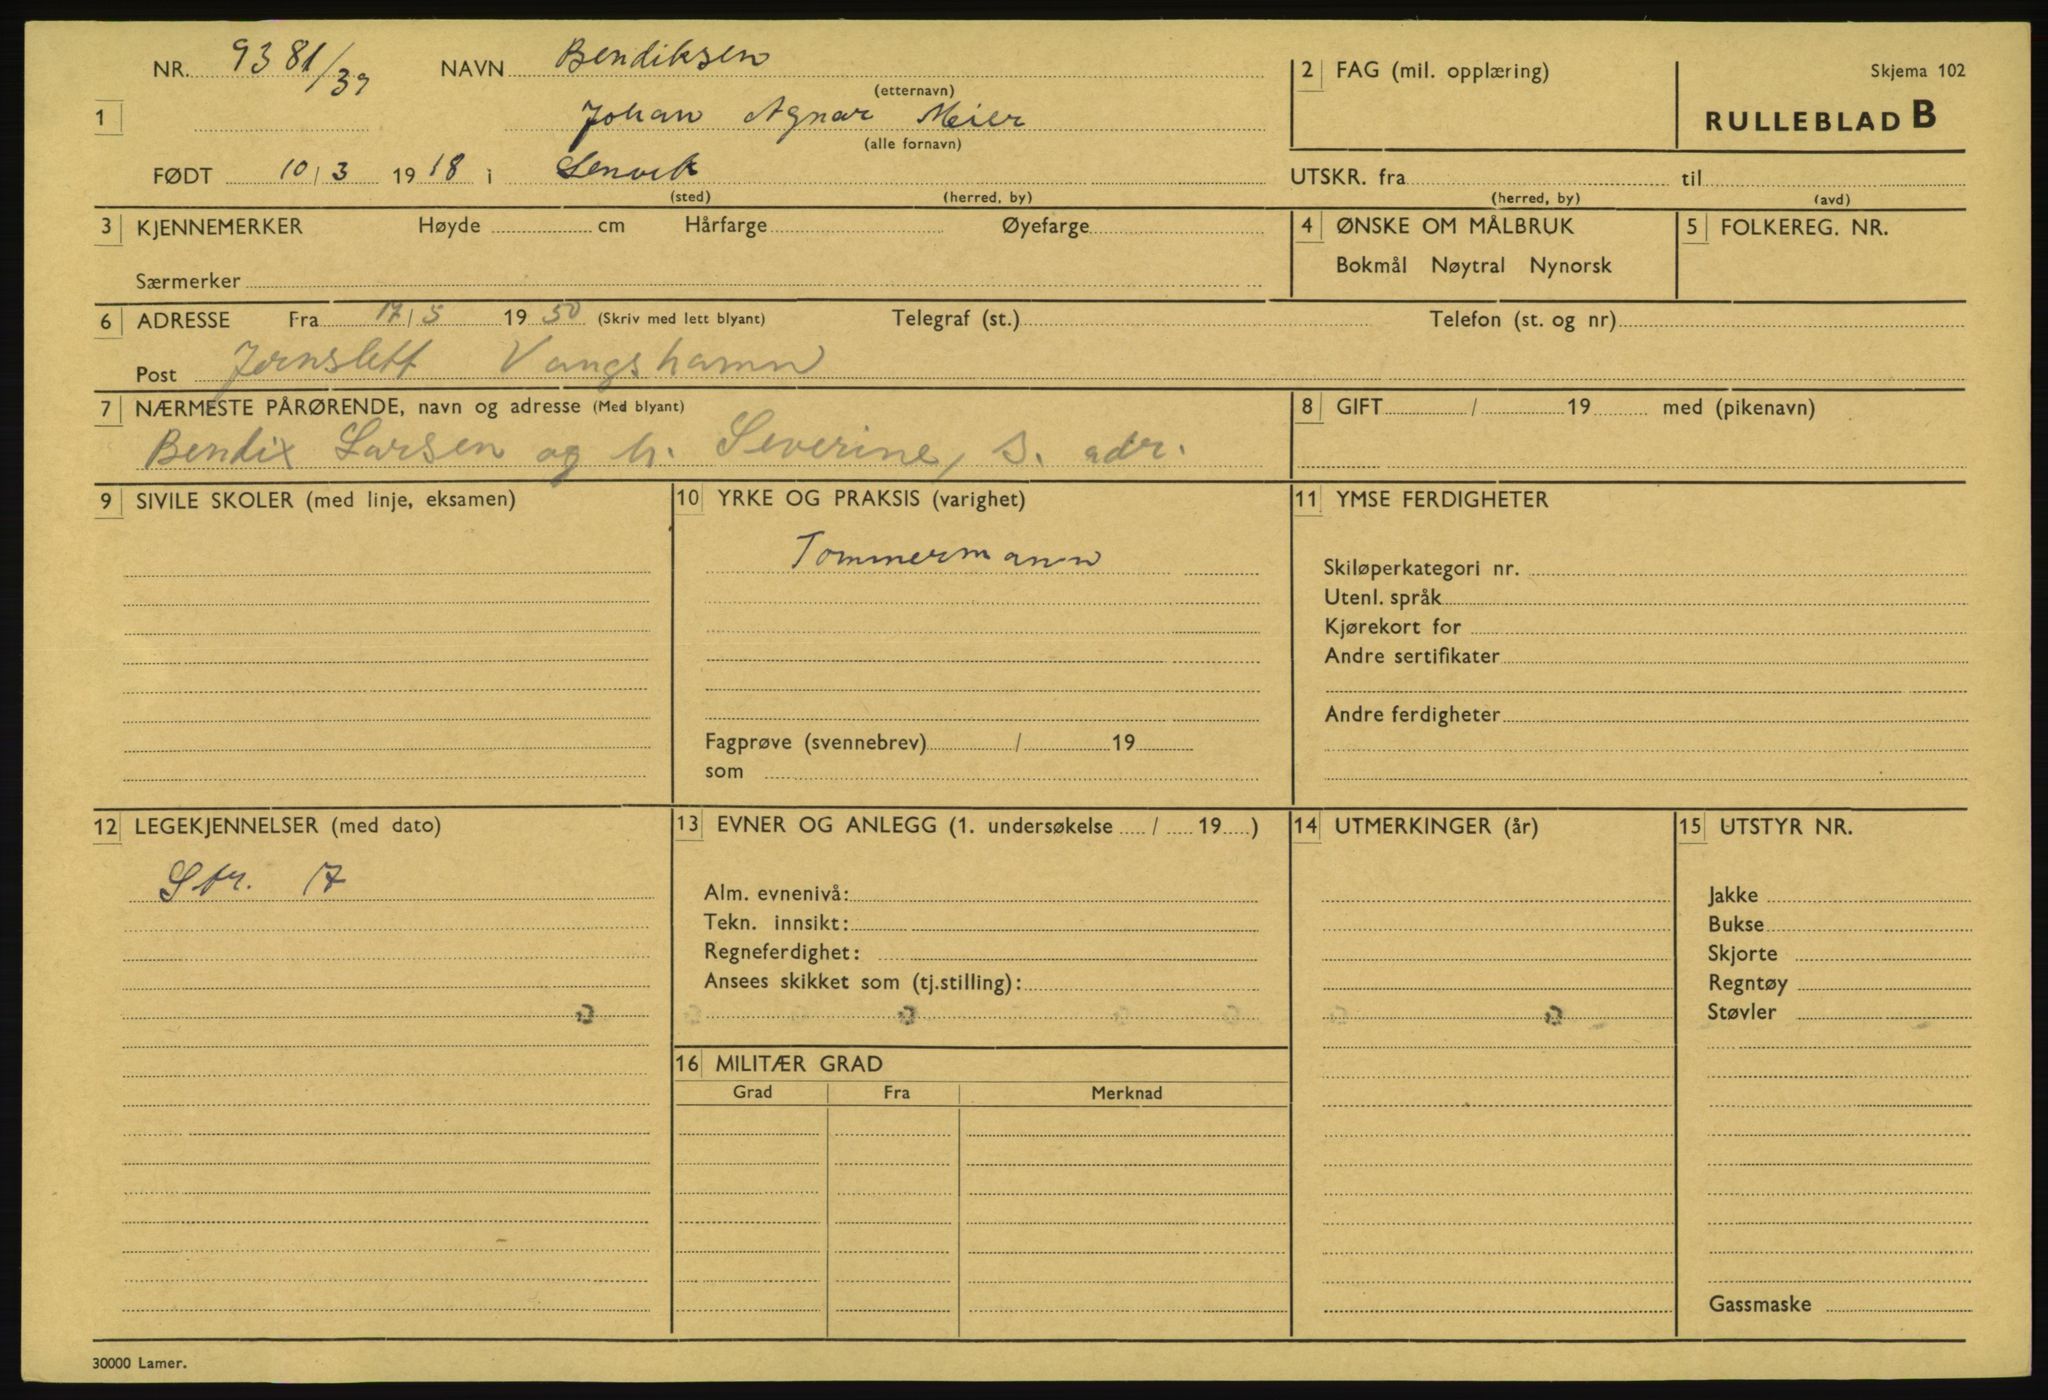 NR. 9381/39 NAVN Bendiksen 2 FAG (mil. opplæring) Skjema 102
(etternavn)
1 Johan Agnar Meier RULLEBLAD B
(alle fornavn)
FØDT 10/3 1918 i Lenvik UTSKR. fra til
(sted) (herred, by) (herred, by) (avd)
3 KJENNEMERKER Høyde cm Hårfarge Øyefarge 4 ØNSKE OM MÅLBRUK 5 FOLKEREG. NR.
Bokmål Nøytral Nynorsk
Særmerker
6 ADRESSE Fra 17/5 1950 (Skriv med lett blyant) Telegraf (st.) Telefon (st. og nr)
Post Jernslett Vangshamn
7 NÆRMESTE PÅRØRENDE, navn og adresse (Med blyant) 8 GIFT / 19 med (pikenavn)
Bendix Larsen og h. Severine, s. adr.
9 SIVILE SKOLER (med linje, eksamen) 10 YRKE OG PRAKSIS (varighet) 11 YMSE FERDIGHETER
Tømmermann
Skiløperkategori nr.
Utenl. språk
Kjørekort for
Andre sertifikater
Andre ferdigheter
Fagprøve (svennebrev) / 19
som
12 LEGEKJENNELSER (med dato) 13 EVNER OG ANLEGG (1. undersøkelse / 19 ) 14 UTMERKINGER (år) 15 UTSTYR NR.
Str. 17
Alm. evnenivå: Jakke
Tekn. innsikt: Bukse
Regneferdighet: Skjorte
Ansees skikket som (tj.stilling): Regntøy
Støvler
16 MILITÆR GRAD
Grad Fra Merknad
Gassmaske
30000 Lamer.